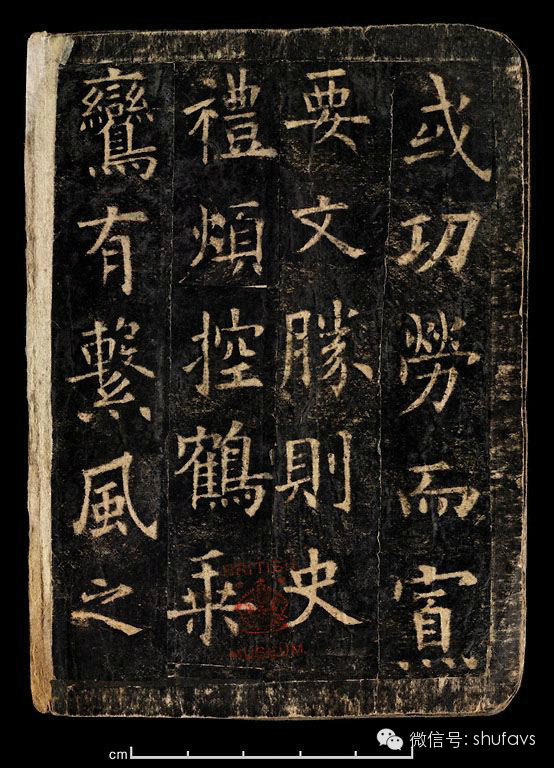 或功勞而寡
要文勝則史
禮煩控鶴乘
鸞有繫風之
BRITISH
MUSEUM
cm
微信号: shufavs